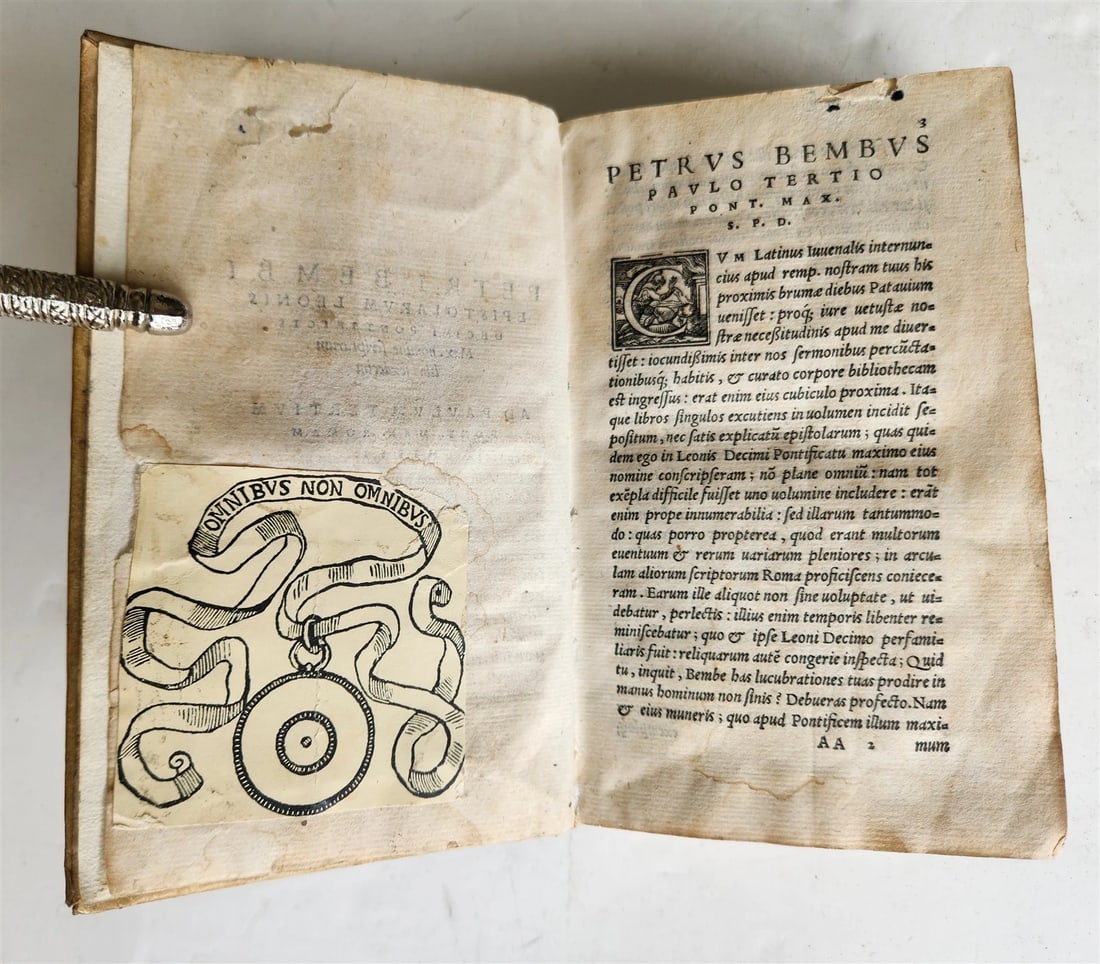 OMNIBVS NON OMNIBVS
3
PETRVS BEMBVS
PAVLO TERTIO
PONT. MAX.
S. P. D.
CVM Latinus Iuuenalis internun=
cius apud remp. nostram tuus his
proximis brumæ diebus Patauium
uenisset : proq; iure uetustæ no=
stræ necessitudinis apud me diuer=
tisset : iocundissimis inter nos sermonibus percūcta=
tionibusq; habitis, & curato corpore bibliothecam
est ingressus : erat enim eius cubiculo proxima. Ita=
que libros singulos excutiens in uolumen incidit se=
positum, nec satis explicatū epistolarum; quas qui=
dem ego in Leonis Decimi Pontificatu maximo eius
nomine conscripseram; nō plane omniū: nam tot
exēpla difficile fuisset uno uolumine includere : erāt
enim prope innumerabilia : sed illarum tantummo=
do : quas porro propterea, quod erant multorum
euentuum & rerum uariarum pleniores; in arcu=
lam aliorum scriptorum Roma proficiscens coniece=
ram. Earum ille aliquot non sine uoluptate, ut ui=
debatur, perlectis : illius enim temporis libenter re=
miniscebatur; quo & ipse Leoni Decimo perfami=
liaris fuit : reliquarum autē congerie inspecta; Quid
tu, inquit, Bembe has lucubrationes tuas prodire in
manus hominum non sinis? Debueras profecto. Nam
& eius muneris; quo apud Pontificem illum maxi=
AA 2 mum